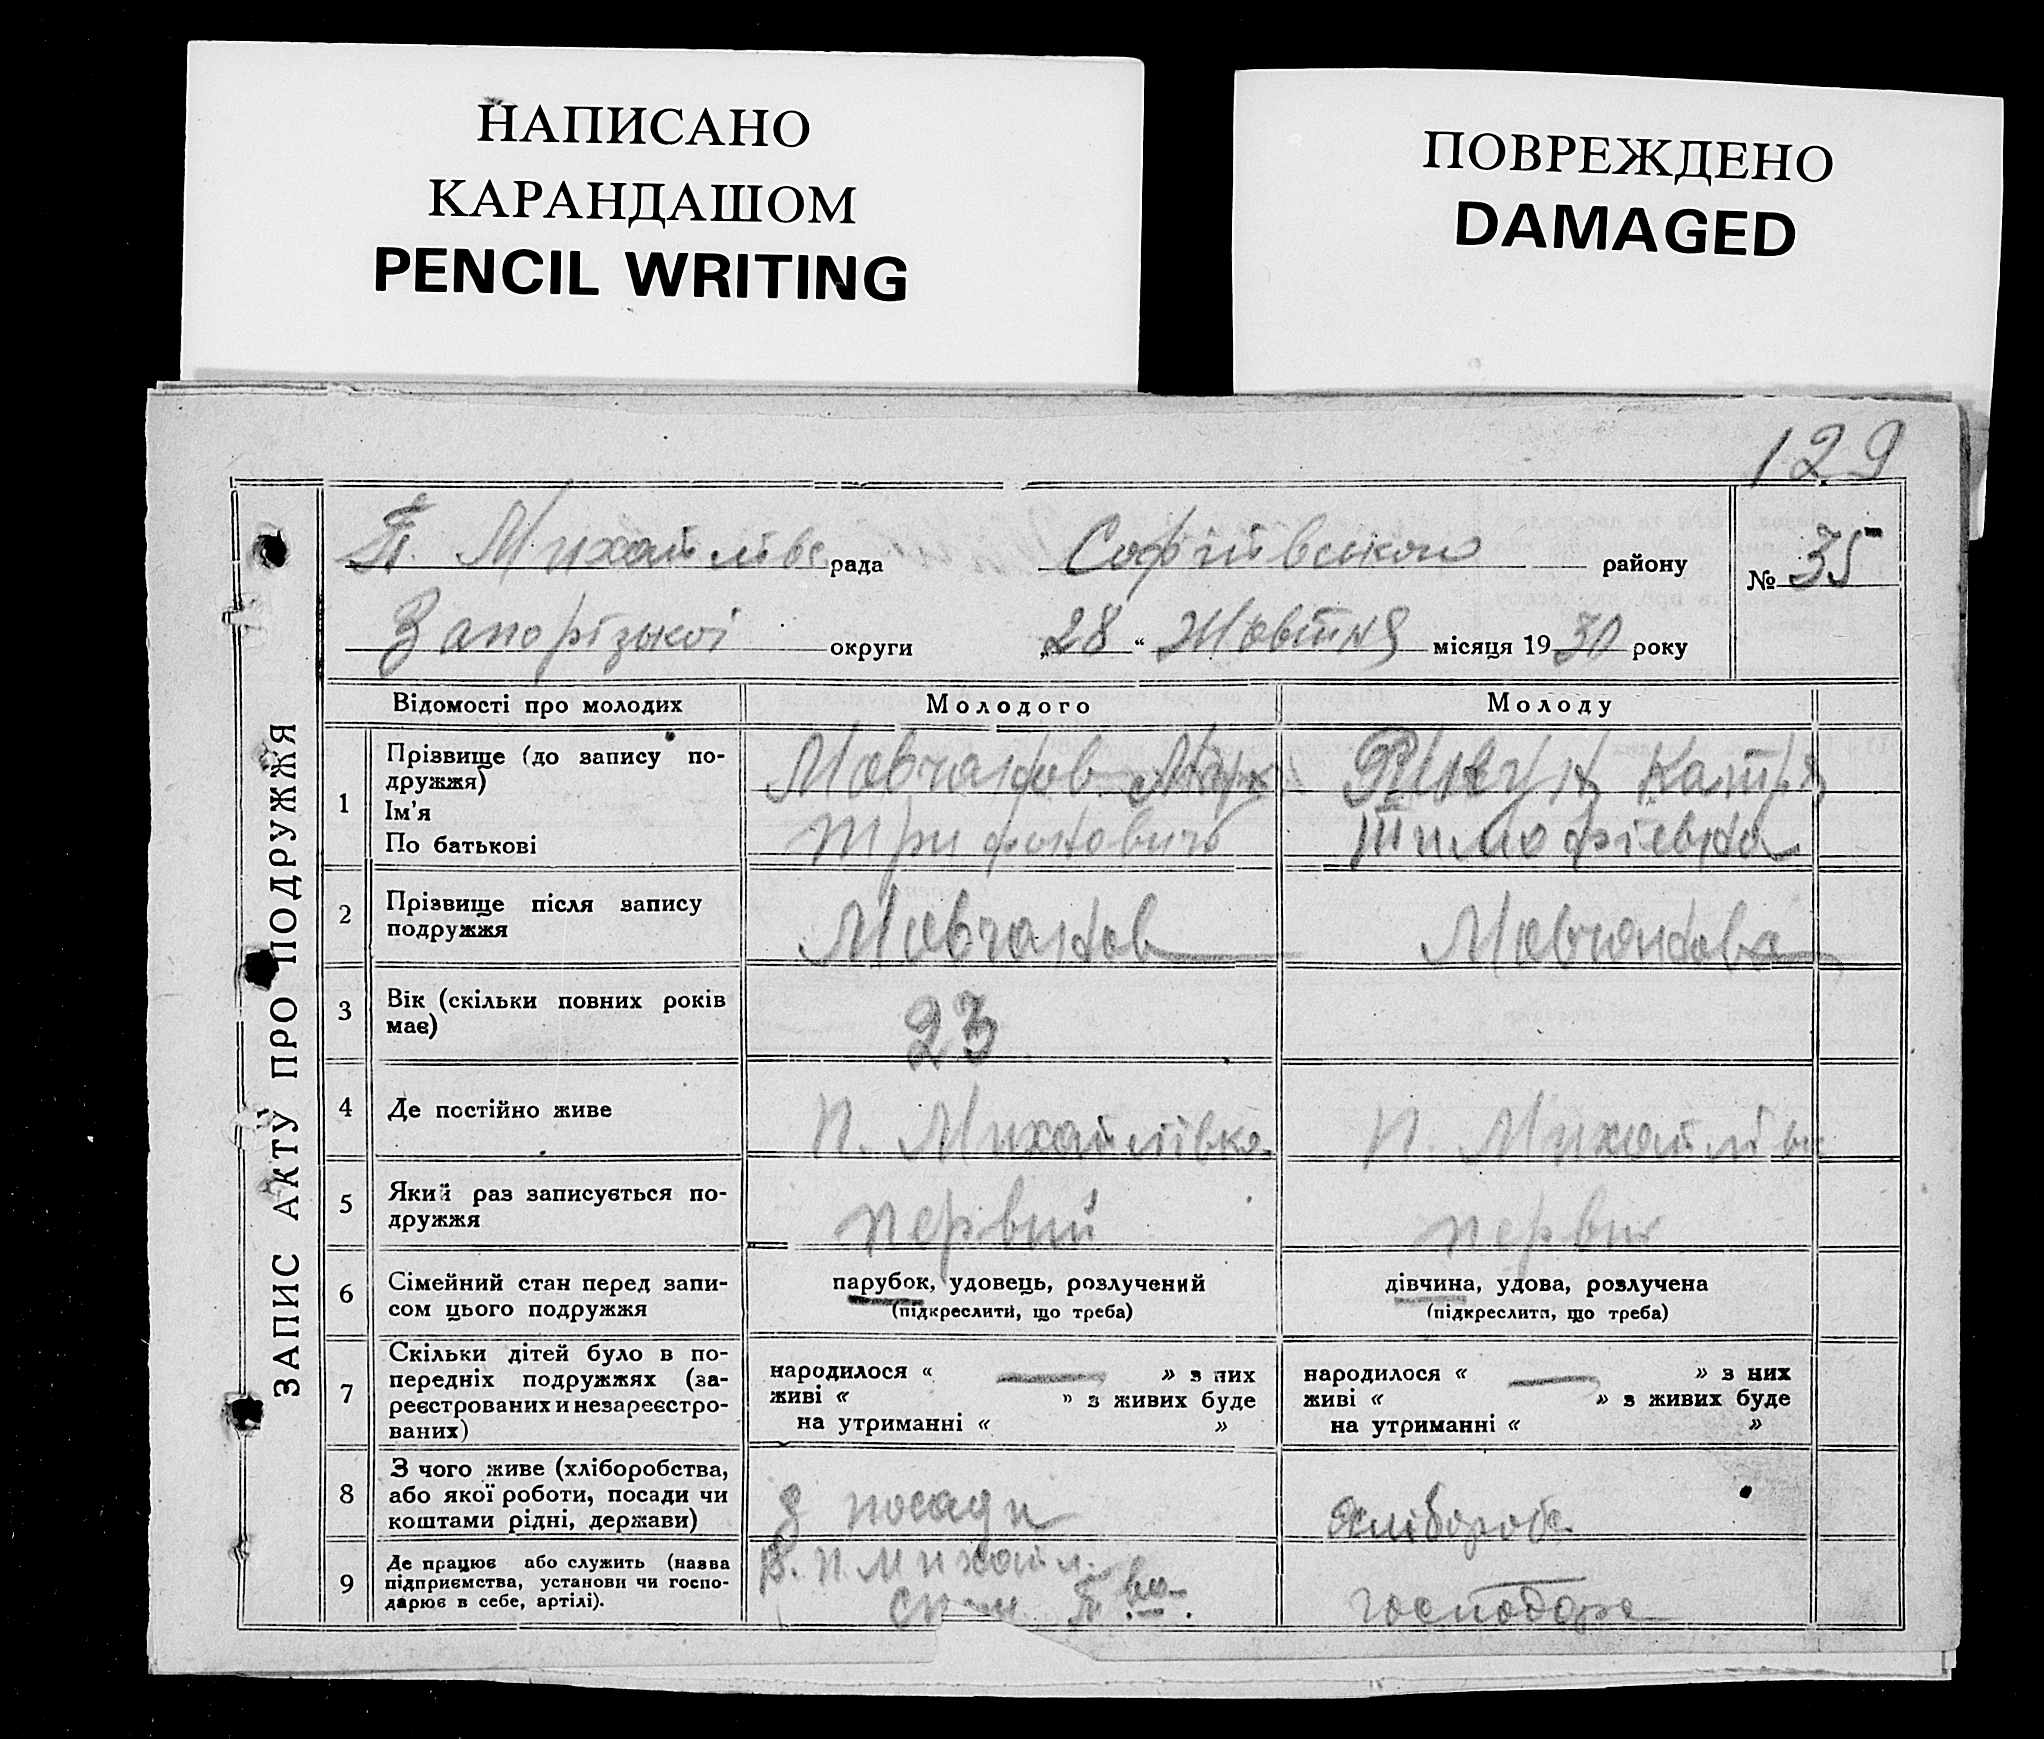 НАПИСАНО
КАРАНДАШОМ
PENCIL WRITING
ПОВРЕЖДЕНО
DAMAGED
129
ЗАПИС АКТУ ПРО ПОДРУЖЖЯ
П. Михайлівс рада Софіївського району № 35
Запорізької округи „28“ Жовтня місяця 1930 року
Відомості про молодих Молодого Молоду
1 Прізвище (до запису подружжя) Ім'я По батькові
Мовчанов Марк
Трифонович
Катря
Тимофієвна
2 Прізвище після запису подружжя Мовчанов Мовчанова
3 Вік (скільки повних років має) 23
4 Де постійно живе П. Михайлівка П. Михайлівк
5 Який раз записується подружжя первий перви
6 Сімейний стан перед записом цього подружжя
парубок, удовець, розлучений
(підкреслити, що треба)
дівчина, удова, розлучена
(підкреслити, що треба)
7 Скільки дітей було в попередніх подружжях (зареєстрованих и незареєстрованих)
народилося « — » з них
живі « » з живих буде
на утриманні « »
народилося « — » з них
живі « » з живих буде
на утриманні « »
8 З чого живе (хліборобства, або якої роботи, посади чи коштами рідні, держави) З посади хлібороб.
9 Де працює або служить (назва підприємства, установи чи господарює в себе, артілі).
В. П. Михайл.
Т-во.
господарс